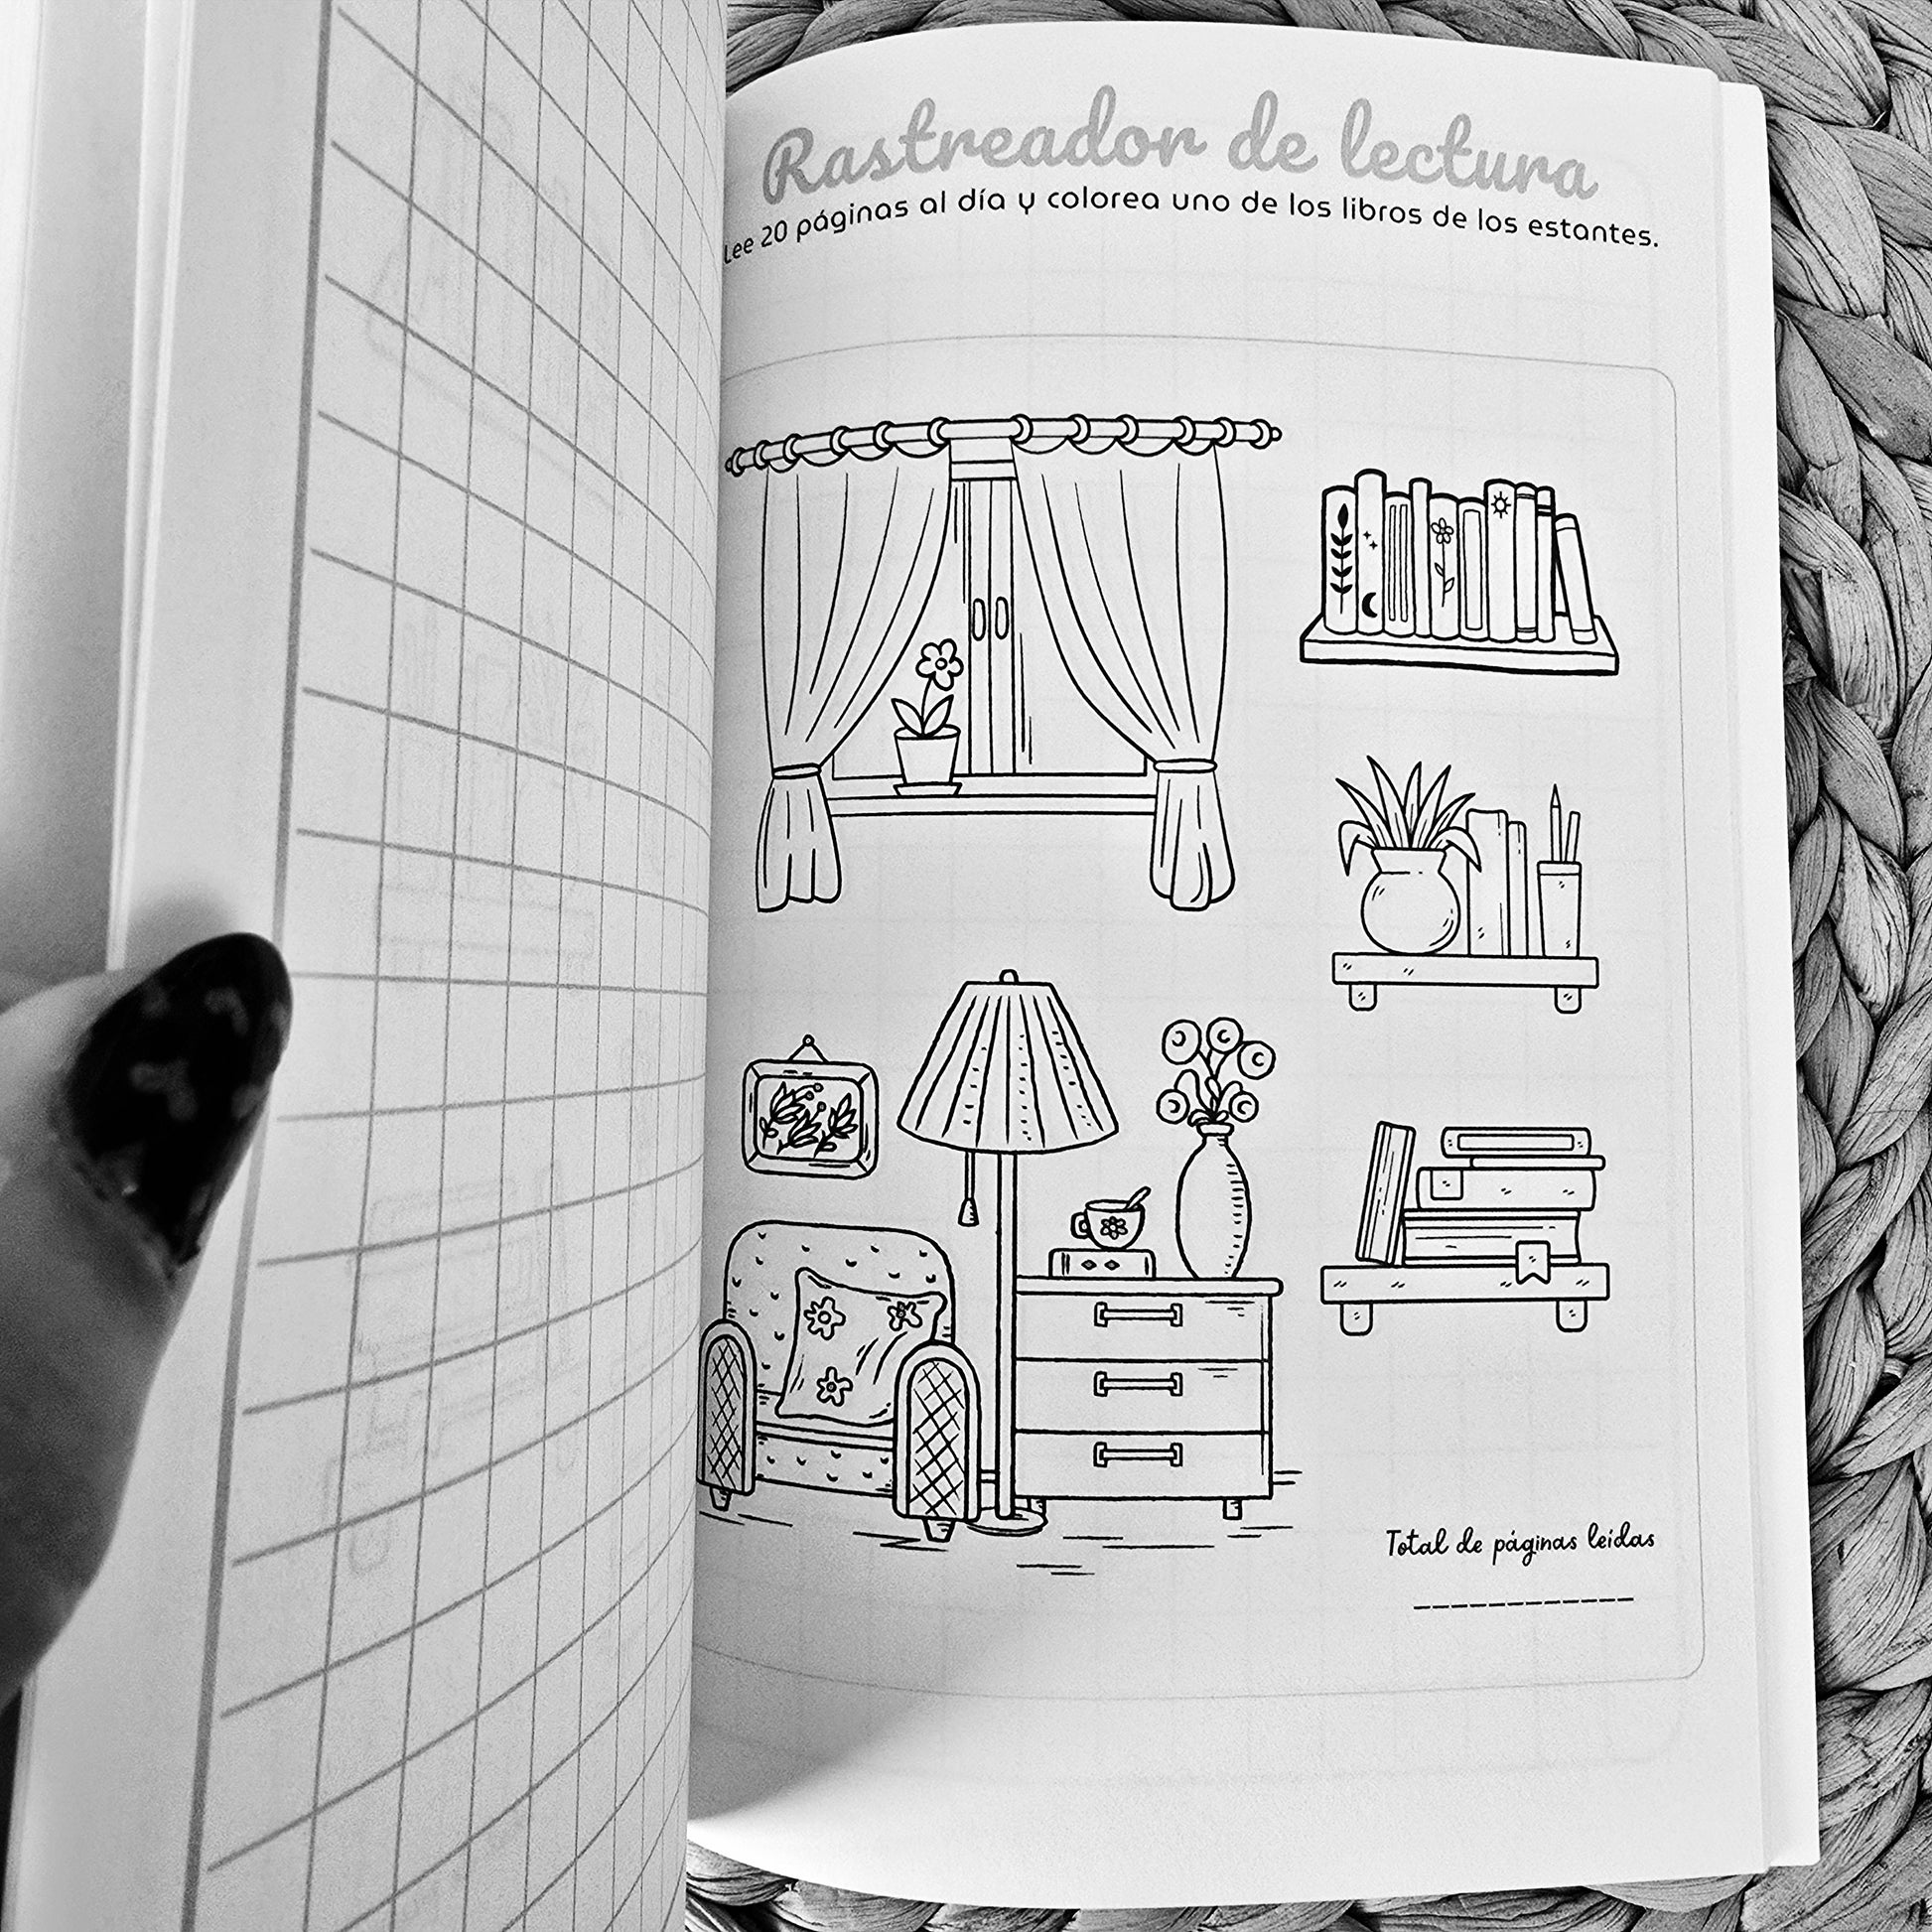 Rastreador de lectura
Lee 20 páginas al día y colorea uno de los libros de los estantes.
Total de páginas leídas